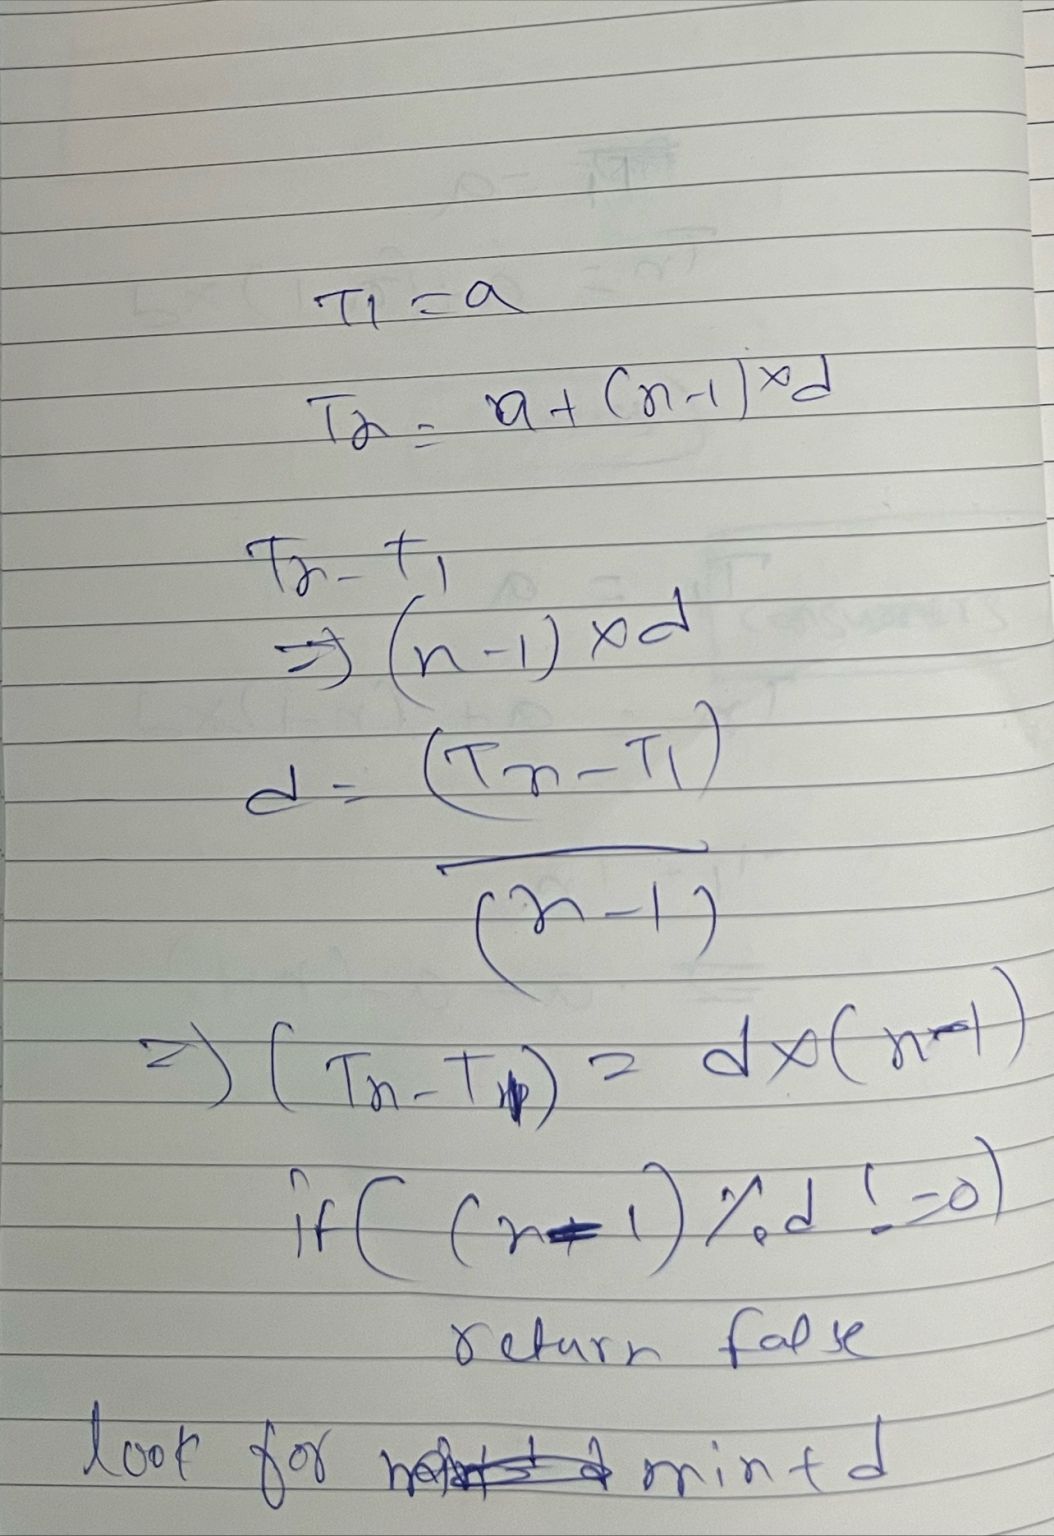 T1 = a
Tn = a + (n-1) × d
Tn - T1
=> (n-1) × d
d = (Tn - T1)
(n-1)
=> (Tn - T1) = d × (n-1)
if ( (n-1) % d != 0)
return false
look for min + d